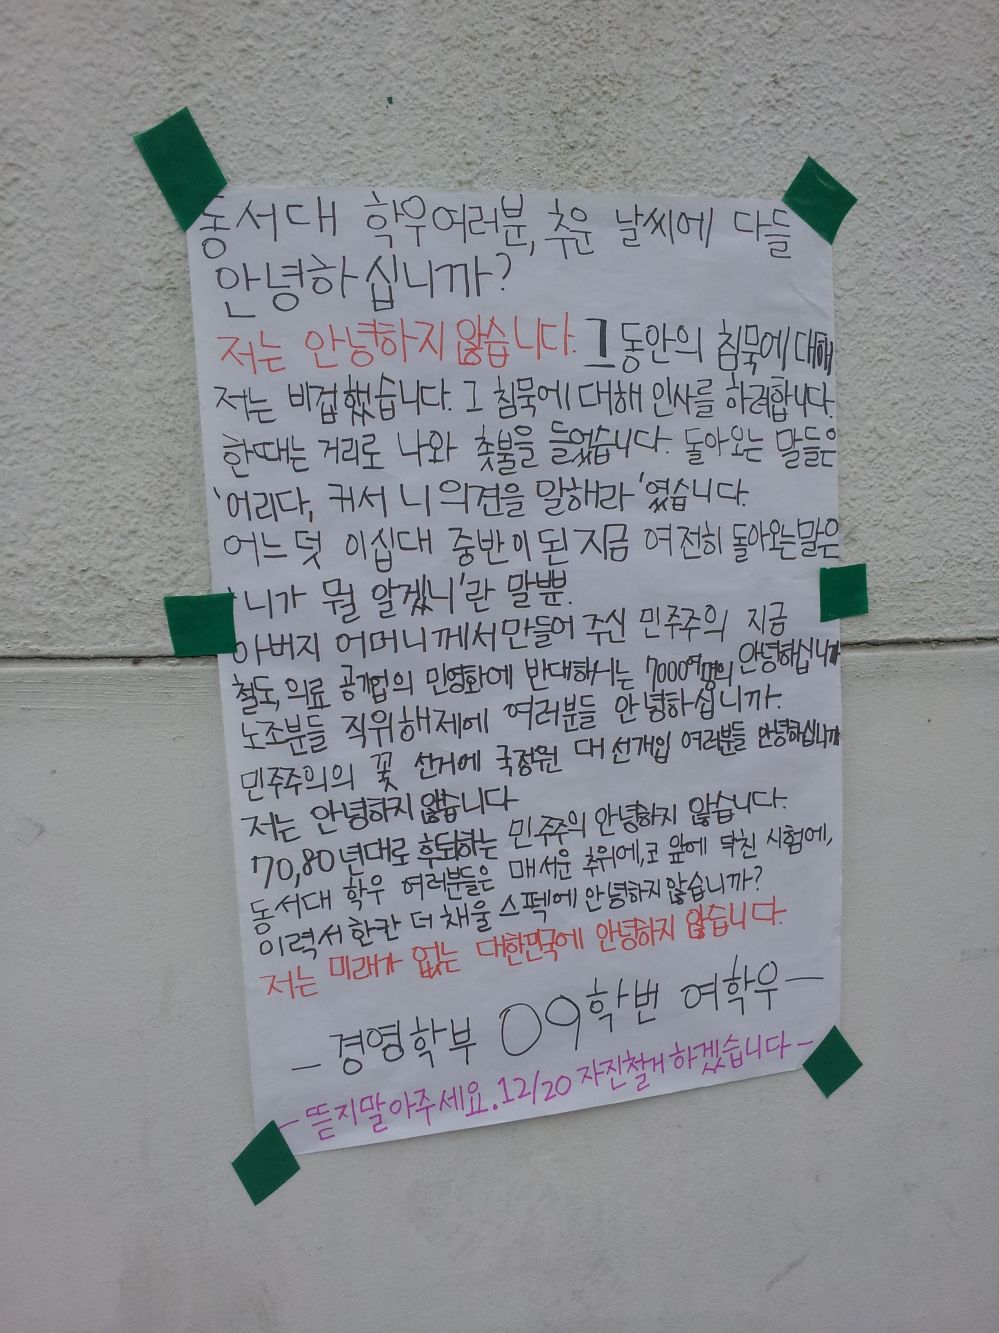 동서대 학우여러분, 추운 날씨에 다들
안녕하십니까?
저는 안녕하지 않습니다. 그동안의 침묵에 대해
저는 비겁했습니다. 그 침묵에 대해 인사를 하려합니다.
한때는 거리로 나와 촛불을 들었습니다. 돌아오는 말들은
'어리다, 커서 니 의견을 말해라'였습니다.
어느덧 이십대 중반이 된 지금 여전히 돌아오는말은
'니가 뭘 알겠니'란 말뿐.
아버지 어머니께서만들어 주신 민주주의 지금 안녕하십니까
철도, 의료 공기업의 민영화에 반대하시는 7000여명의
노조분들 직위해제에 여러분들 안녕하십니까.
민주주의의 꽃 선거에 국정원 대선개입 여러분들 안녕하십니까
저는 안녕하지 않습니다
70,80년대로 후퇴하는 민주주의 안녕하지 않습니다.
동서대 학우 여러분들은 매서운 추위에, 코 앞에 닥친 시험에,
이력서 한칸 더 채울 스펙에 안녕하지 않습니까?
저는 미래가 없는 대한민국에 안녕하지 않습니다.
- 경영학부 09학번 여학우 -
- 뜯지말아주세요. 12/20 자진철거하겠습니다 -